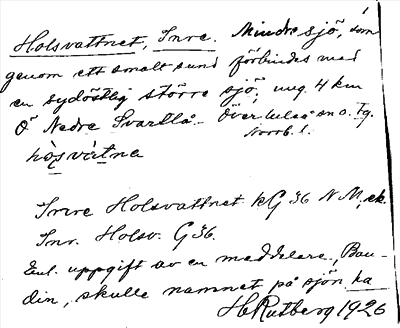 Holsvattnet, Inre. Mindre sjö, som
genom ett smalt sund förbindes med
en sydöstlig större sjö, ung. 4 km
Ö Nedre Svartlå. Överluleå sn o. Tg.
Norrb. l.
Inre Holsvattnet kG 36 N M, ek.
Inr. Holsv. G 36.
Enl. uppgift av en meddelare, Bau-
din, skulle namnet på sjön ha
H Rutberg 1926